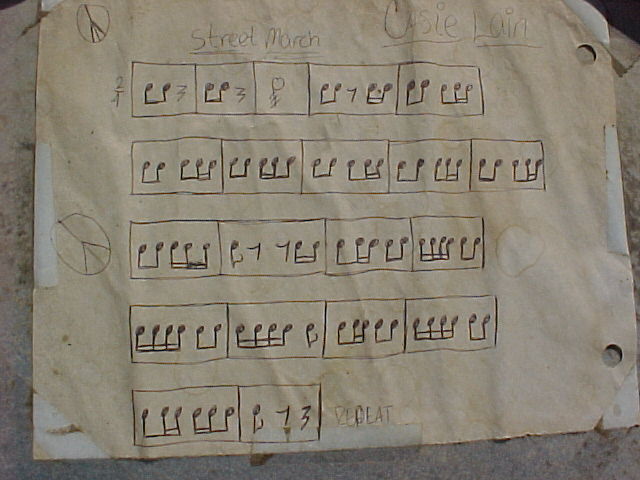 Street March
Casie Lain
2
4
REPEAT